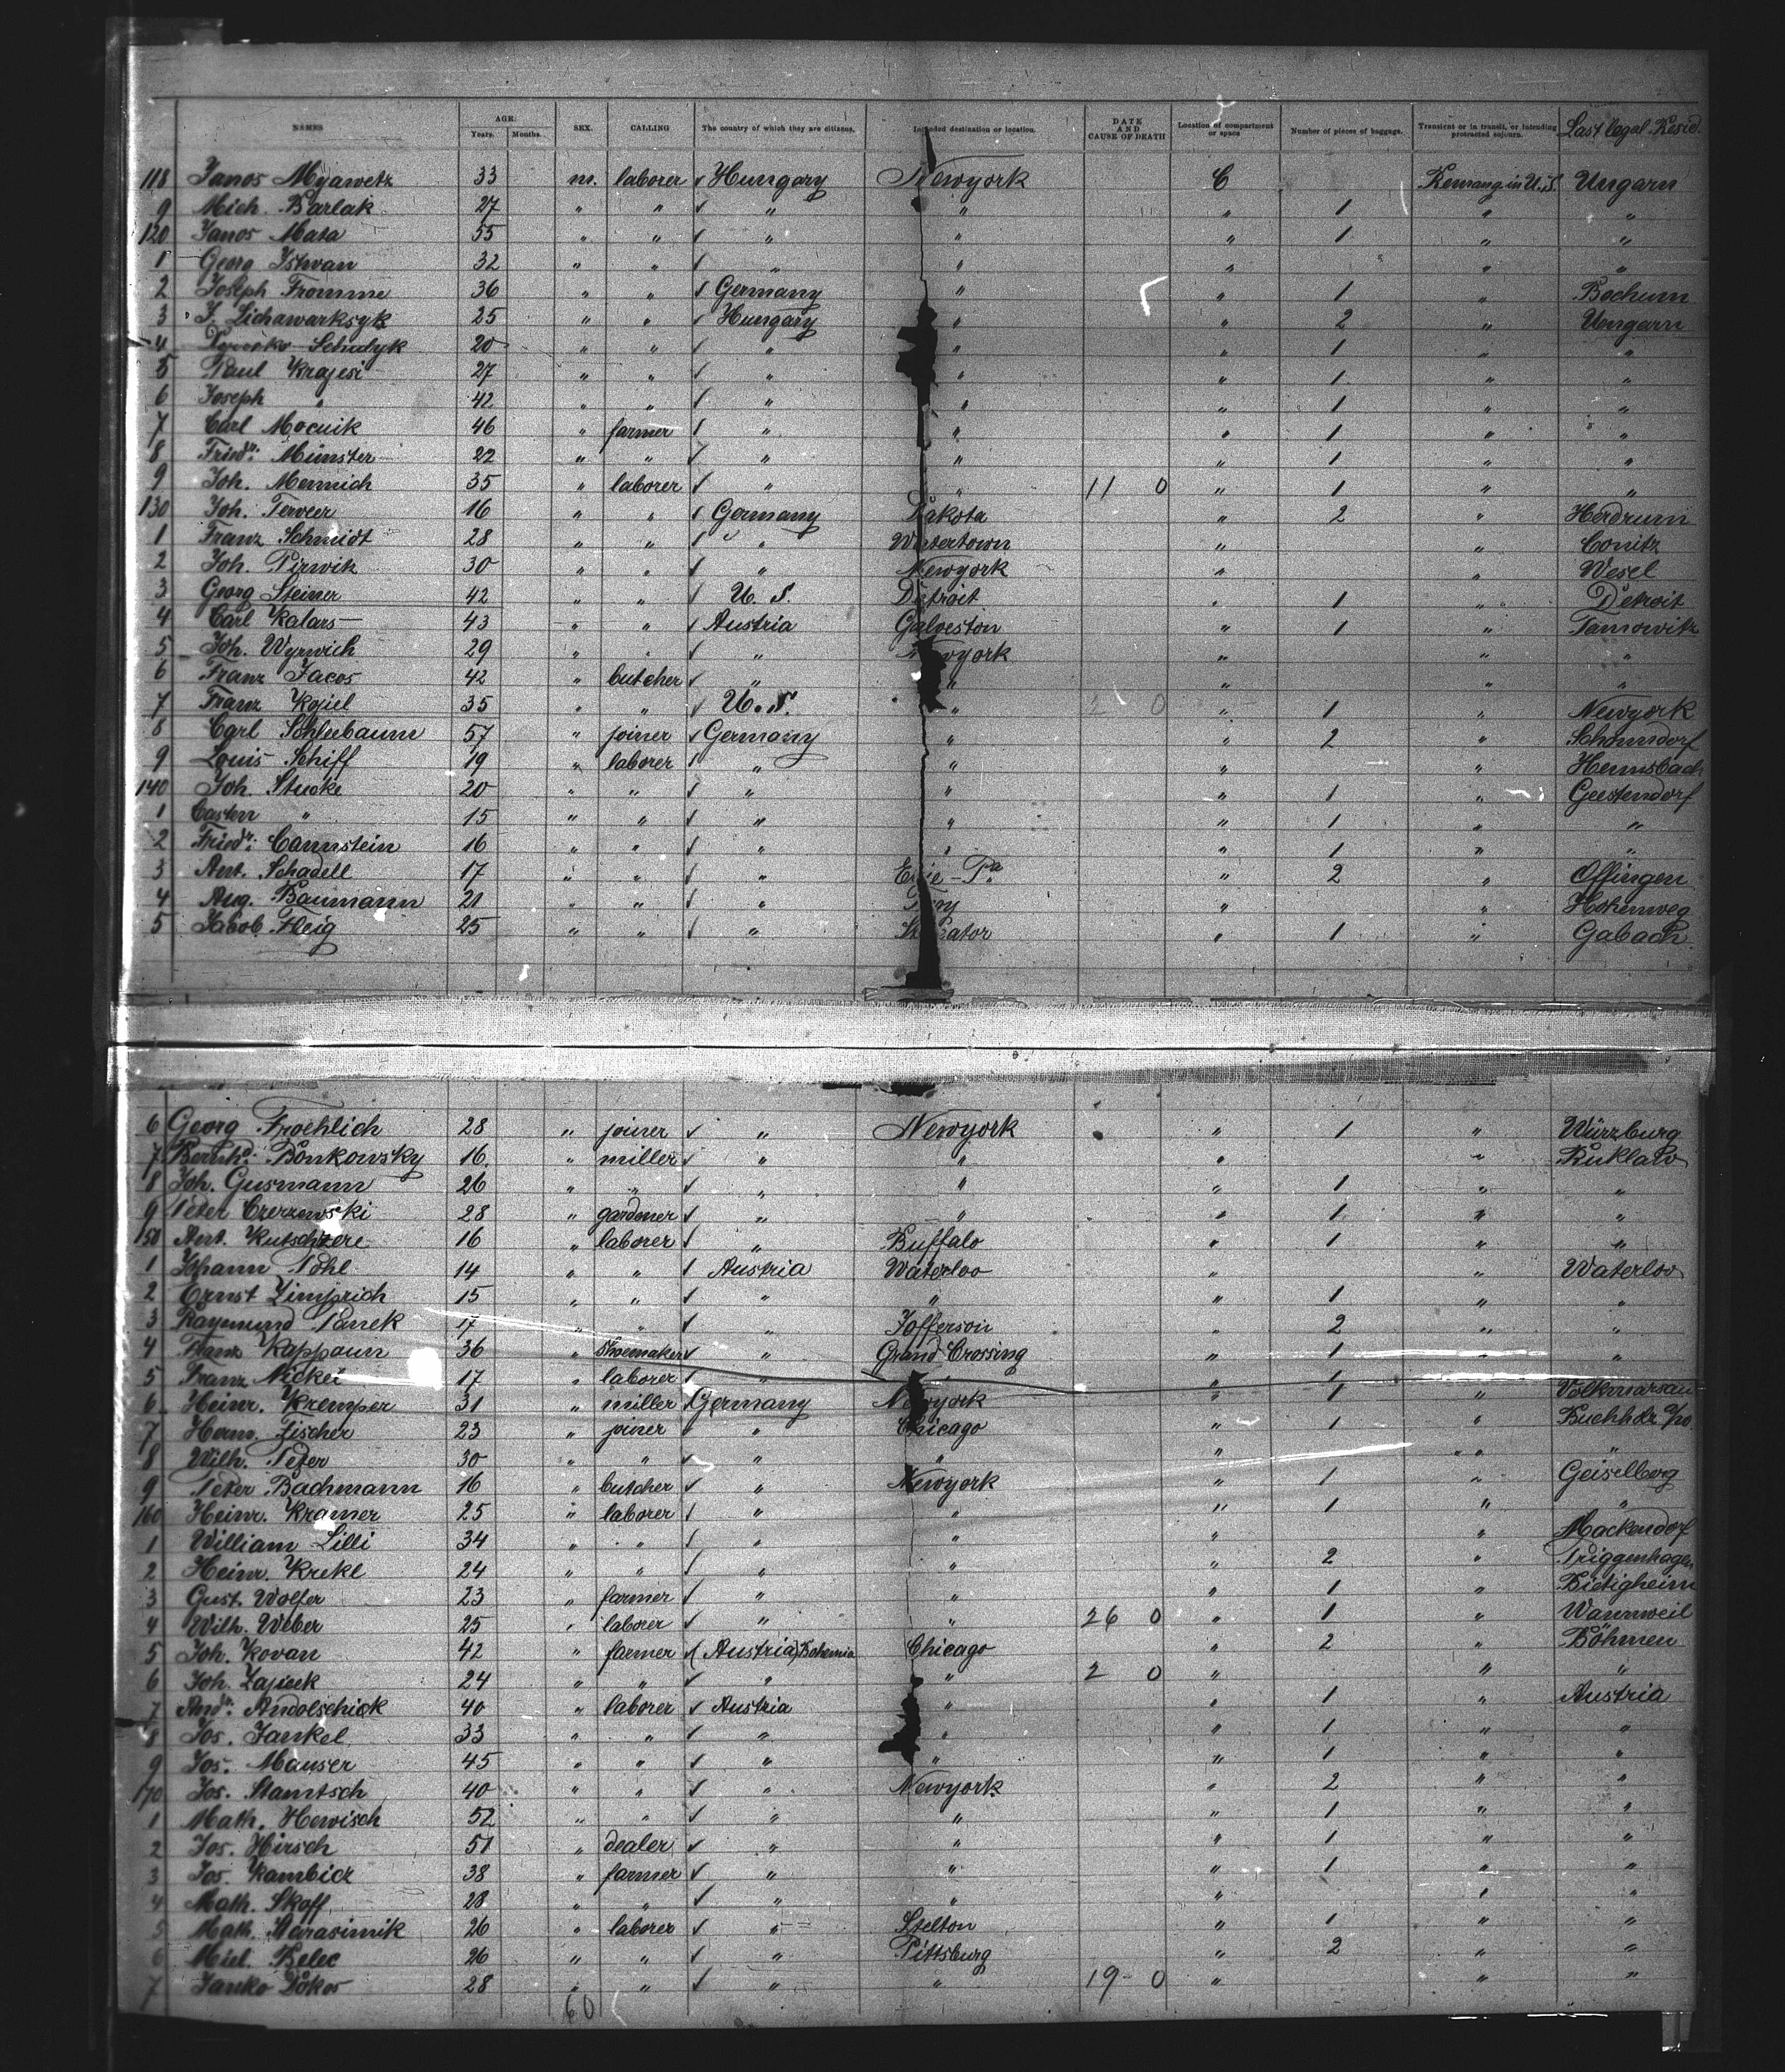 NAMES AGE. Years. Months. SEX. CALLING The country of which they are citizens. Intended destination or location. DATE AND CAUSE OF DEATH Location of compartment or space Number of pieces of baggage. Transient or in transit, or intending protracted sojourn. Last legal Resid.
118 Janos Myawetz 33 m. laborer ✓ Hungary Newyork C Remang. in U.S. Ungarn
9 Mich. Barlak 27 " " ✓ " " " 1 " "
120 Janos Mata 55 " " ✓ " " " 1 " "
1 Georg Istwan 32 " " ✓ " " " " "
2 Joseph Fromme 36 " " ✓ Germany " " 1 " Bochum
3 J. Lichawarksyk 25 " " ✓ Hungary " " 2 " Ungarn
4 Schudyk 20 " " ✓ " " " 1 " "
5 Paul Krajesi 27 " " ✓ " " " 1 " "
6 Joseph " 42 " " ✓ " " " 1 " "
7 Carl Mocnik 46 " farmer ✓ " " " 1 " "
8 Friedr. Münster 22 " " ✓ " " " 1 " "
9 Joh. Mennich 35 " laborer ✓ " " 11 0 " 1 " "
130 Joh. Terveer 16 " " ✓ Germany Dakota " 2 " Herdrum
1 Franz Schmidt 28 " " ✓ " Watertown " " Conitz
2 Joh. Pirwitz 30 " " ✓ " Newyork " " Wesel
3 Georg Steiner 42 " " ✓ U. S. Detroit " 1 " Detroit
4 Carl Kalars 43 " " ✓ Austria Galveston " 1 " Tarnowitz
5 Joh. Wyrwich 29 " " ✓ " Newyork " " "
6 Franz Jacos 42 " butcher ✓ " " " " "
7 Franz Kojiel 35 " " ✓ U. S. " 2 0 " 1 " Newyork
8 Carl Schleebaum 57 " joiner ✓ Germany " " 2 " Schonsdorf
9 Louis Schiff 19 " laborer ✓ " " " " Hemsbach
140 Joh. Stucke 20 " " ✓ " " " 1 " Geestendorf
1 Casten " 15 " " ✓ " " " 1 " "
2 Friedr. Cannstein 16 " " ✓ " " " 1 " "
3 Ant. Schadell 17 " " ✓ " Erie - Pa " 2 " Offingen
4 Aug. Baumann 21 " " ✓ " Troy " " Hohenweg
5 Jakob Fleig 25 " " ✓ " " 1 " Gabach
6 Georg Froehlich 28 " joiner ✓ " Newyork " 1 " Würzburg
7 Bernhd. Bönkowsky 16 " miller ✓ " " " " Ruklaw
8 Joh. Gusmann 26 " " ✓ " " " 1 " "
9 Peter Czerzewski 28 " gardener ✓ " " " 1 " "
150 Ant. Kutschzere 16 " laborer ✓ " Buffalo " 1 " "
1 Johann Pohl 14 " " ✓ Austria Waterloo " " Waterloo
2 Ernst Zimprich 15 " " ✓ " " " 1 " "
3 Raymund Panek 17 " " ✓ " Jofferson " 2 " "
4 Franz Kappaun 36 " Shoemaker ✓ " Grand Crossing " 1 " "
5 Franz Nickei 17 " laborer ✓ " " " 1 " "
6 Heinr. Kremper 31 " miller ✓ Germany Newyork " 1 " Volkmarsau
7 Herm. Fischer 23 " joiner ✓ " Chicago " 1 " Buchholz
8 Wilh. Peter 30 " " ✓ " " " " "
9 Peter Bachmann 16 " butcher ✓ " Newyork " 1 " Geiselberg
160 Heinr. Kramer 25 " laborer ✓ " " " 1 " "
1 William Lilli 34 " " ✓ " " " " Mackendorf
2 Heinr. Krekl 24 " " ✓ " " " 2 " Triggenhagen
3 Gust. Wolfer 23 " farmer ✓ " " " 1 " Bietigheim
4 Wilh. Weber 25 " laborer ✓ " " 26 0 " 1 " Wannweil
5 Joh. Kovan 42 " farmer ✓ (Austria) Bohemia Chicago " 2 " Böhmen
6 Joh. Zajicek 24 " " ✓ " " 2 0 " " "
7 Andr. Andolschick 40 " laborer ✓ Austria " " 1 " Austria
8 Jos. Jankel 33 " " ✓ " " " 1 " "
9 Jos. Mauser 45 " " ✓ " " " 1 " "
170 Jos. Stamtsch 40 " " ✓ " Newyork " 2 " "
1 Math. Hewisch 52 " " ✓ " " " 1 " "
2 Jos. Hirsch 51 " dealer ✓ " " " 1 " "
3 Jos. Kambicz 38 " farmer ✓ " " " 1 " "
4 Math. Skoff 28 " " ✓ " " " 1 "
5 Math. Starasinik 26 " laborer ✓ " Stelton " 1 " "
6 Miel. Belec 26 " " ✓ " Pittsburg " 2 " "
7 Janko Dökos 28 " " ✓ " " 19 - 0 " " "
60